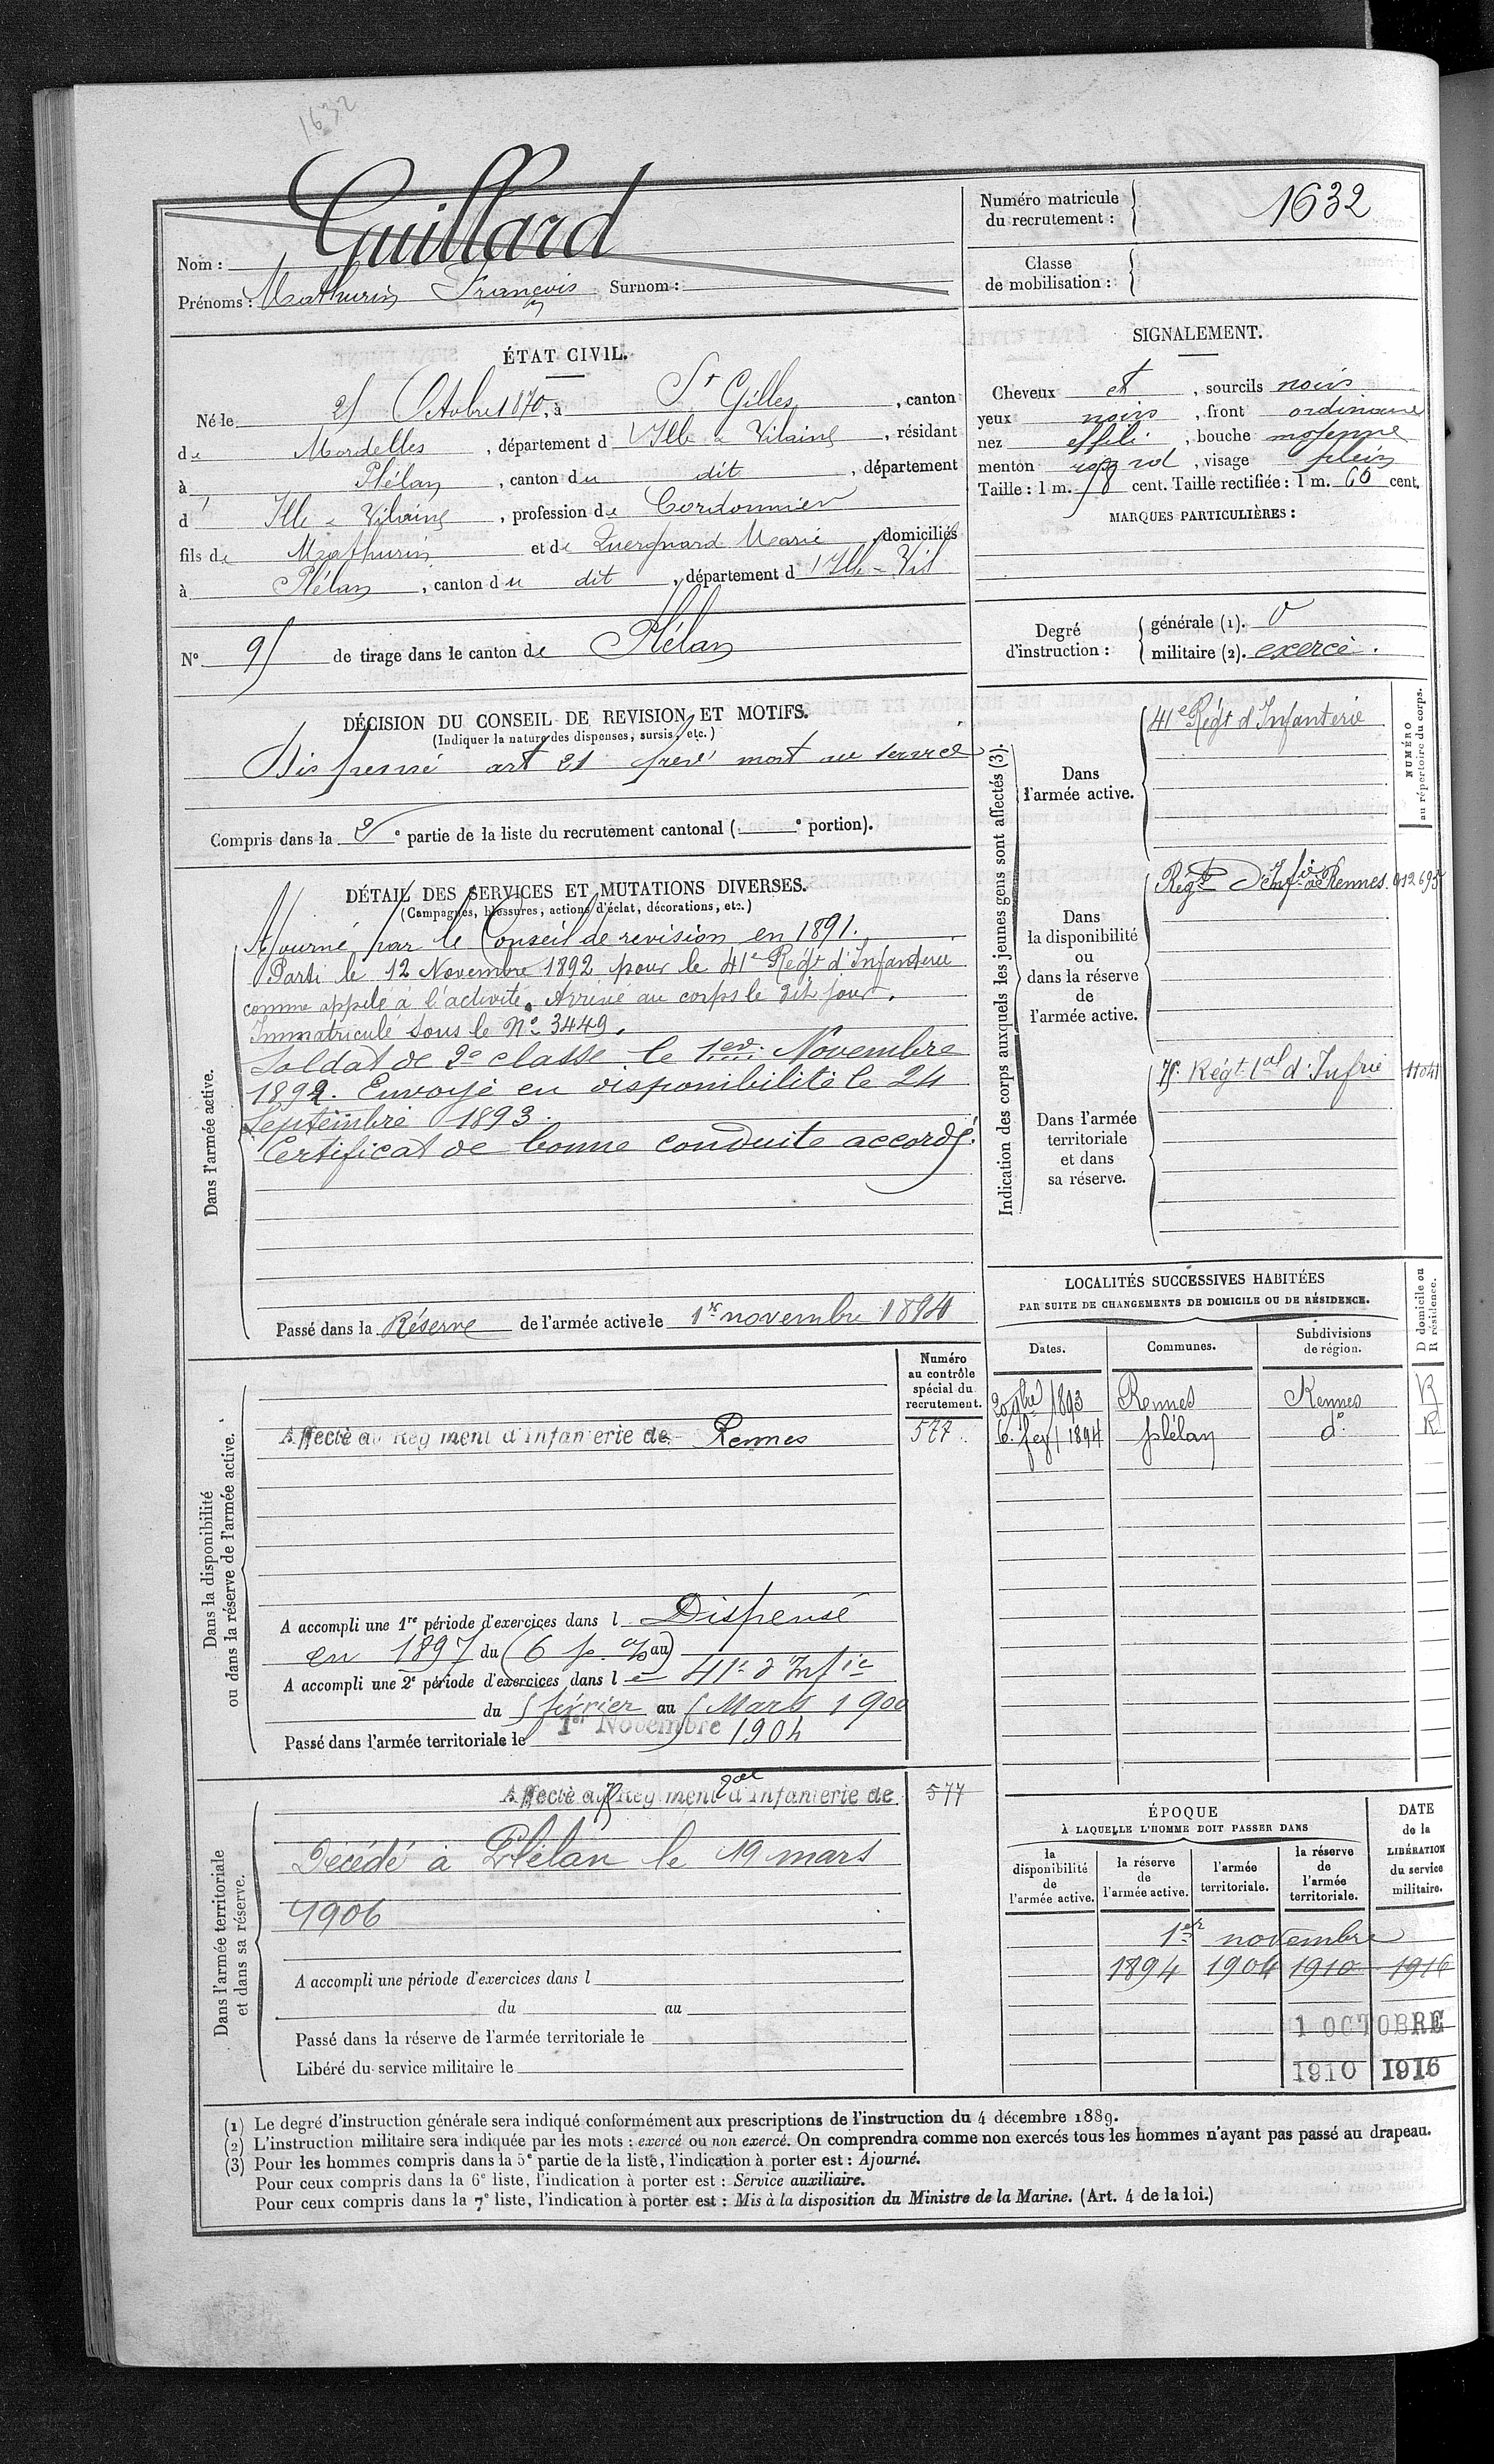 1632
Guillard
Nom :
Prénoms : Mathurin François Surnom :
Numéro matricule du recrutement : 1632
Classe de mobilisation :
ÉTAT CIVIL.
Né le 25 Octobre 1870, à St Gilles, canton
de Mordelles, département d'Ille & Vilaine, résidant
à Plélan, canton du dit, département
d' Ille & Vilaine, profession de Cordonnier
fils de Mathurin et de Marie, domiciliés
à Plélan, canton du dit, département d'Ille-Vil
N° 95 de tirage dans le canton de Plélan
SIGNALEMENT.
Cheveux et, sourcils noirs
yeux noirs, front ordinaire
nez effilé, bouche moyenne
menton rond, visage plein
Taille : 1 m. 58 cent. Taille rectifiée : 1 m. 60 cent.
MARQUES PARTICULIÈRES :
Degré d'instruction : générale (1).
militaire (2). exercé.
DÉCISION DU CONSEIL DE REVISION ET MOTIFS.
(Indiquer la nature des dispenses, sursis, etc.)
Dispensé art 21 frère mort au service
Compris dans la 2e partie de la liste du recrutement cantonal ( e portion).
DÉTAIL DES SERVICES ET MUTATIONS DIVERSES.
(Campagnes, blessures, actions d'éclat, décorations, etc.)
Dans l'armée active.
Ajourné par le Conseil de revision en 1891.
Parti le 12 Novembre 1892 pour le 41e Regt d'Infanterie
comme appelé à l'activité. Arrivé au corps le dit jour.
Immatriculé sous le No 3449.
Soldat de 2e classe le 1er Novembre
1892. Envoyé en disponibilité le 24
Septembre 1893.
Certificat de bonne conduite accordé.
Passé dans la Réserve de l'armée active le 1er novembre 1894
Indication des corps auxquels les jeunes gens sont affectés (3).
NUMÉRO au répertoire du corps.
Dans l'armée active.
41e Régt d'Infanterie
Dans la disponibilité ou dans la réserve de l'armée active.
Régt d'Infie de Rennes.
Dans l'armée territoriale et dans sa réserve.
75e Régt tal d'Infrie 11041
LOCALITÉS SUCCESSIVES HABITÉES
PAR SUITE DE CHANGEMENTS DE DOMICILE OU DE RÉSIDENCE.
Dates. Communes. Subdivisions de région. D domicile ou R résidence.
1893 Rennes Rennes R
6 fév 1894 plélan do R
Dans la disponibilité ou dans la réserve de l'armée active.
Numéro au contrôle spécial du recrutement.
Affecté au Régiment d'Infanterie de Rennes 577
A accompli une 1re période d'exercices dans l Dispensé
en 1897 du (6 p. % au)
A accompli une 2e période d'exercices dans l e 41e d'Infie
du 5 février au 5 Mars 1900
Passé dans l'armée territoriale le 1er Novembre 1904
Dans l'armée territoriale et dans sa réserve.
Affecté au 75 Régiment tal d'Infanterie de 577
Décédé à Plélan le 19 mars
1906
A accompli une période d'exercices dans l
du au
Passé dans la réserve de l'armée territoriale le
Libéré du service militaire le
ÉPOQUE
À LAQUELLE L'HOMME DOIT PASSER DANS
la disponibilité de l'armée active. la réserve de l'armée active. l'armée territoriale. la réserve de l'armée territoriale. DATE de la LIBÉRATION du service militaire.
1er novembre
1894 1904 1910 1916
1 OCTOBRE
1910 1916
(1) Le degré d'instruction générale sera indiqué conformément aux prescriptions de l'instruction du 4 décembre 1889.
(2) L'instruction militaire sera indiquée par les mots : exercé ou non exercé. On comprendra comme non exercés tous les hommes n'ayant pas passé au drapeau.
(3) Pour les hommes compris dans la 5e partie de la liste, l'indication à porter est : Ajourné.
Pour ceux compris dans la 6e liste, l'indication à porter est : Service auxiliaire.
Pour ceux compris dans la 7e liste, l'indication à porter est : Mis à la disposition du Ministre de la Marine. (Art. 4 de la loi.)